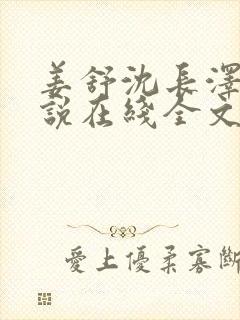 姜舒沈長澤
說在綫全文
愛上優柔寡斷